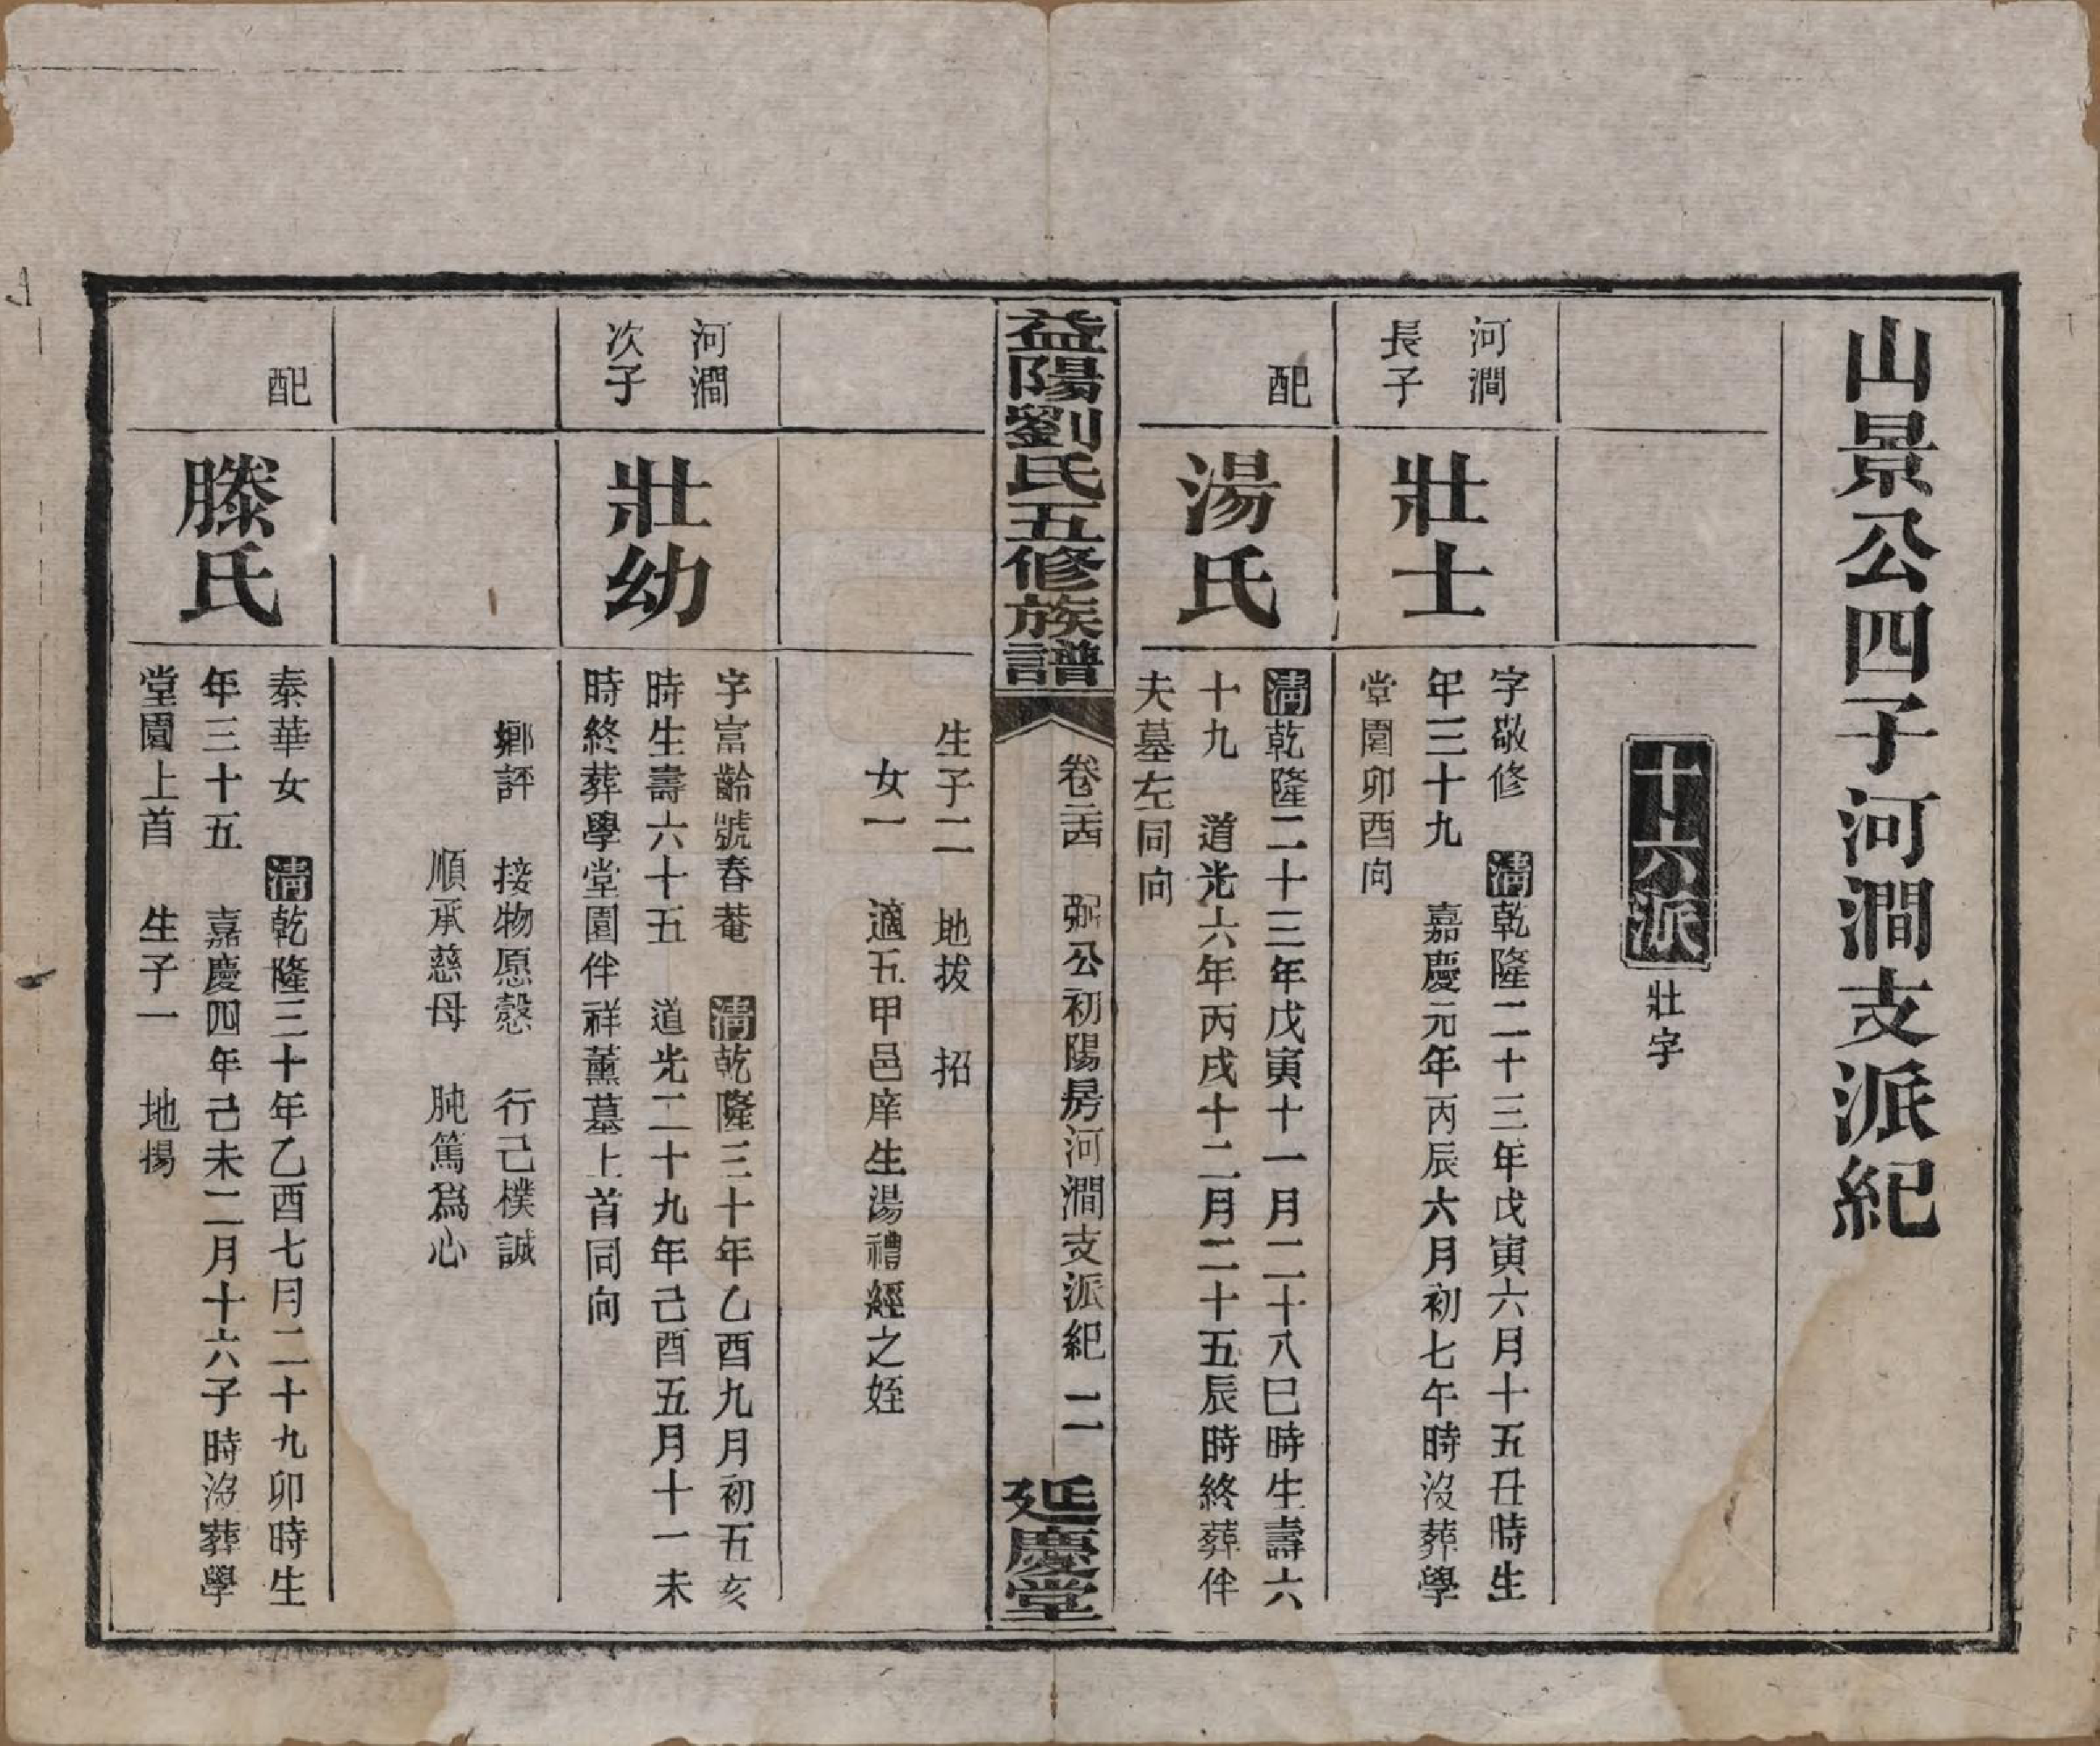 山景公四子河澗支派紀
十六派 壯字
河澗
長子
壯士
字敬修 清乾隆二十三年戊寅六月十五丑時生
年三十九 嘉慶元年丙辰六月初七午時沒葬學
堂園卯酉向
配
湯氏
清乾隆二十三年戊寅十一月二十八巳時生壽六
十九 道光六年丙戌十二月二十五辰時終葬伴
夫墓左同向
益陽劉氏五修族譜
卷二十四 弼公初陽房河澗支派紀 二
延慶堂
生子二 地拔 招
女一 適五甲邑庠生湯禮經之姪
河澗
次子
壯幼
字富齡號春菴 清乾隆三十年乙酉九月初五亥
時生壽六十五 道光二十九年己酉五月十一未
時終葬學堂園伴祥薰墓上首同向
鄉評 接物愿慤 行己樸誠
順承慈母 肫篤爲心
配
滕氏
泰華女 清乾隆三十年乙酉七月二十九卯時生
年三十五 嘉慶四年己未二月十六子時沒葬學
堂園上首 生子一 地揚